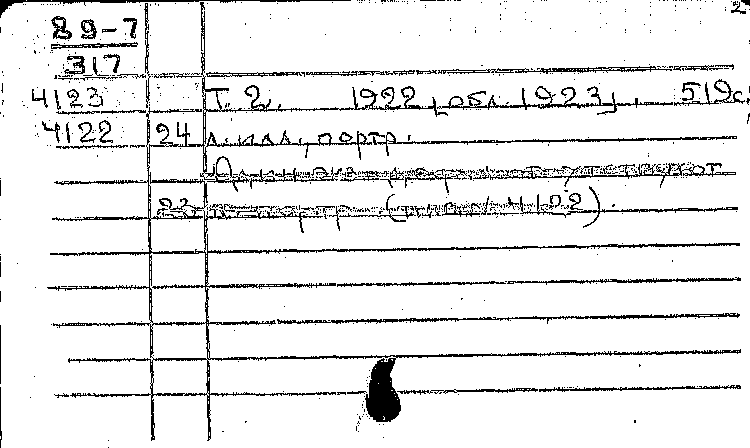 2
89-7
317
4123 Т. 2. 1922 [обл. 1923]. 519с,
4122 24 л. илл., портр.
22 4102).